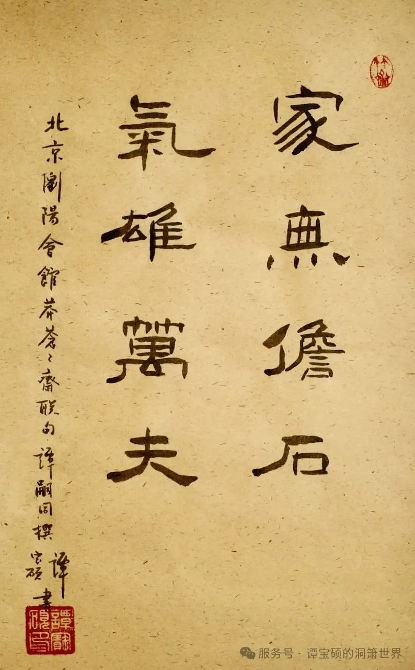 家無儋石
氣雄萬夫
北京瀏陽會館莽蒼〻齋联句譚嗣同撰 譚宝硕書
服务号 · 谭宝硕的洞箫世界